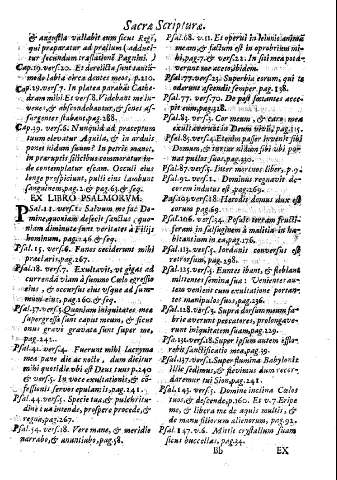 Sacræ Scripturæ.
& angustia vallabit eum sicut Regē,
qui præparatur ad prælium (adduci-
tur secundum traslationē Pagnini.)
Cap. 19. vers. 20. Et derelicta sunt tanti-
modo labia circa dentes meos, p. 210.
Cap. 29. vers. 7. In platea parabāt Cathe-
dram mihi. Et vers. 8. Videbant me iu-
venes, & abscondebantur, & senes as-
surgentes stabant, pag. 288.
Cap. 39. vers. 6. Nunquid ad præceptum
tuum elevatur Aquila, & in arduis
ponet nidum suum? In petris manet,
in præruptis silicibus commoratur in-
de contemplatur escam. Oculi eius
longe prospiciunt, pulli eius lambunt
sanguinem, pag. 2. & pag. 63. & seq.
EX LIBRO PSALMORVM.
Psal. 11. vers. 1. Salvum me fac Do-
mine, quoniam defecit sanctus, quo-
niam diminutæ sunt veritates à Filijs
hominum, pag. 246. & seq.
Psal. 15. vers. 6. Funes ceciderunt mihi
præclaris, pag. 267.
Psal. 18. vers. 7. Exultavit, vt gigas ad
currendā viam à summo Cœlo egressio
eius, & occursus eius vsque ad sum-
mum eius, pag. 160. & seq.
Psal. 37. vers. 5. Quoniam iniquitates meæ
supergressæ sunt caput meum, & sicut
onus gravi gravatæ sunt super me,
pag. 241.
Psal. 41. vers. 4. Fuerunt mihi lacrymæ
meæ pane die ac nocte, dum dicitur
mihi quotidie vbi est Deus tuus p. 240
& vers. 5. In voce exultationis, & cō-
fessionis sonus epulantis, pag. 241.
Psal. 44. vers. 5. Specie tua, & pulchritu-
dine tua intende, prospere procede, &
regna, pag. 267.
Psal. 54. vers. 18. Vere mane, & meridie
narrabo, & anuntiabo, pag. 58.
Psal. 68. v. 11. Et operui in Ieiunio animā
meam, & factum est in opprobrium mi-
hi, pag. 7. & vers. 22. In siti mea potā-
verunt me aceto, ibidem.
Psal. 77. vers. 23. Superbia eorum, qui te
oderunt ascendit semper, pag. 138.
Psal. 77. vers. 70. De post fætantes acce-
pit eum, pag. 328.
Psal. 83. vers. 3. Cor meum, & caro mea
exultaverunt in Deum vivū, pag. 115.
Psal. 83. vers. 4. Etenim passer invenit sibi
Domum, & turtur nidum sibi vbi po-
nat pullos suos, pag. 330.
Psal. 87. vers. 6. Inter mortuos liber, p. 9.
Psal. 92. vers. 1. Dominus regnavit de-
corem indutus est, pag. 269.
Psal. 103. vers. 18. Herodis domus dux est
eorum pag. 69.
Psal. 106. vers. 34. Posuit terram fructi-
feram in salsuginem à malitia in ha-
bitantium in ea, pag. 176.
Psal. 113. vers. 3. Iordanis conversus est
retrorsum, pag. 298.
Psal. 125. vers. 5. Euntes ibant, & flebant
mittentes semina sua: Venientes au-
tem venient cum exultatione portan-
tes manipulos suos, pag. 236.
Psal. 128. vers. 3. Supra dorsum meum fa-
bricaverunt peccatores, prolongave-
runt iniquitatem suam, pag. 229.
Psal. 131. vers. 18. Super ipsum autem efflo-
rebit sanctificatio mea, pag. 39.
Psal. 137. vers. 5. Super flumina Babylonis
illic sedimus, & flevimus dum recor-
daremur tui Sion, pag. 241.
Psal. 143. vers. 5. Domine inclina Cœlos
tuos, & descende, p. 160. Et v. 7. Eripe
me, & libera me de aquis multis, &
de manu filiorum alienorum, pag. 92.
Psal. 147. v. 6. Mittit crystallum suam
sicut buccellas, pag. 34.
Bb EX